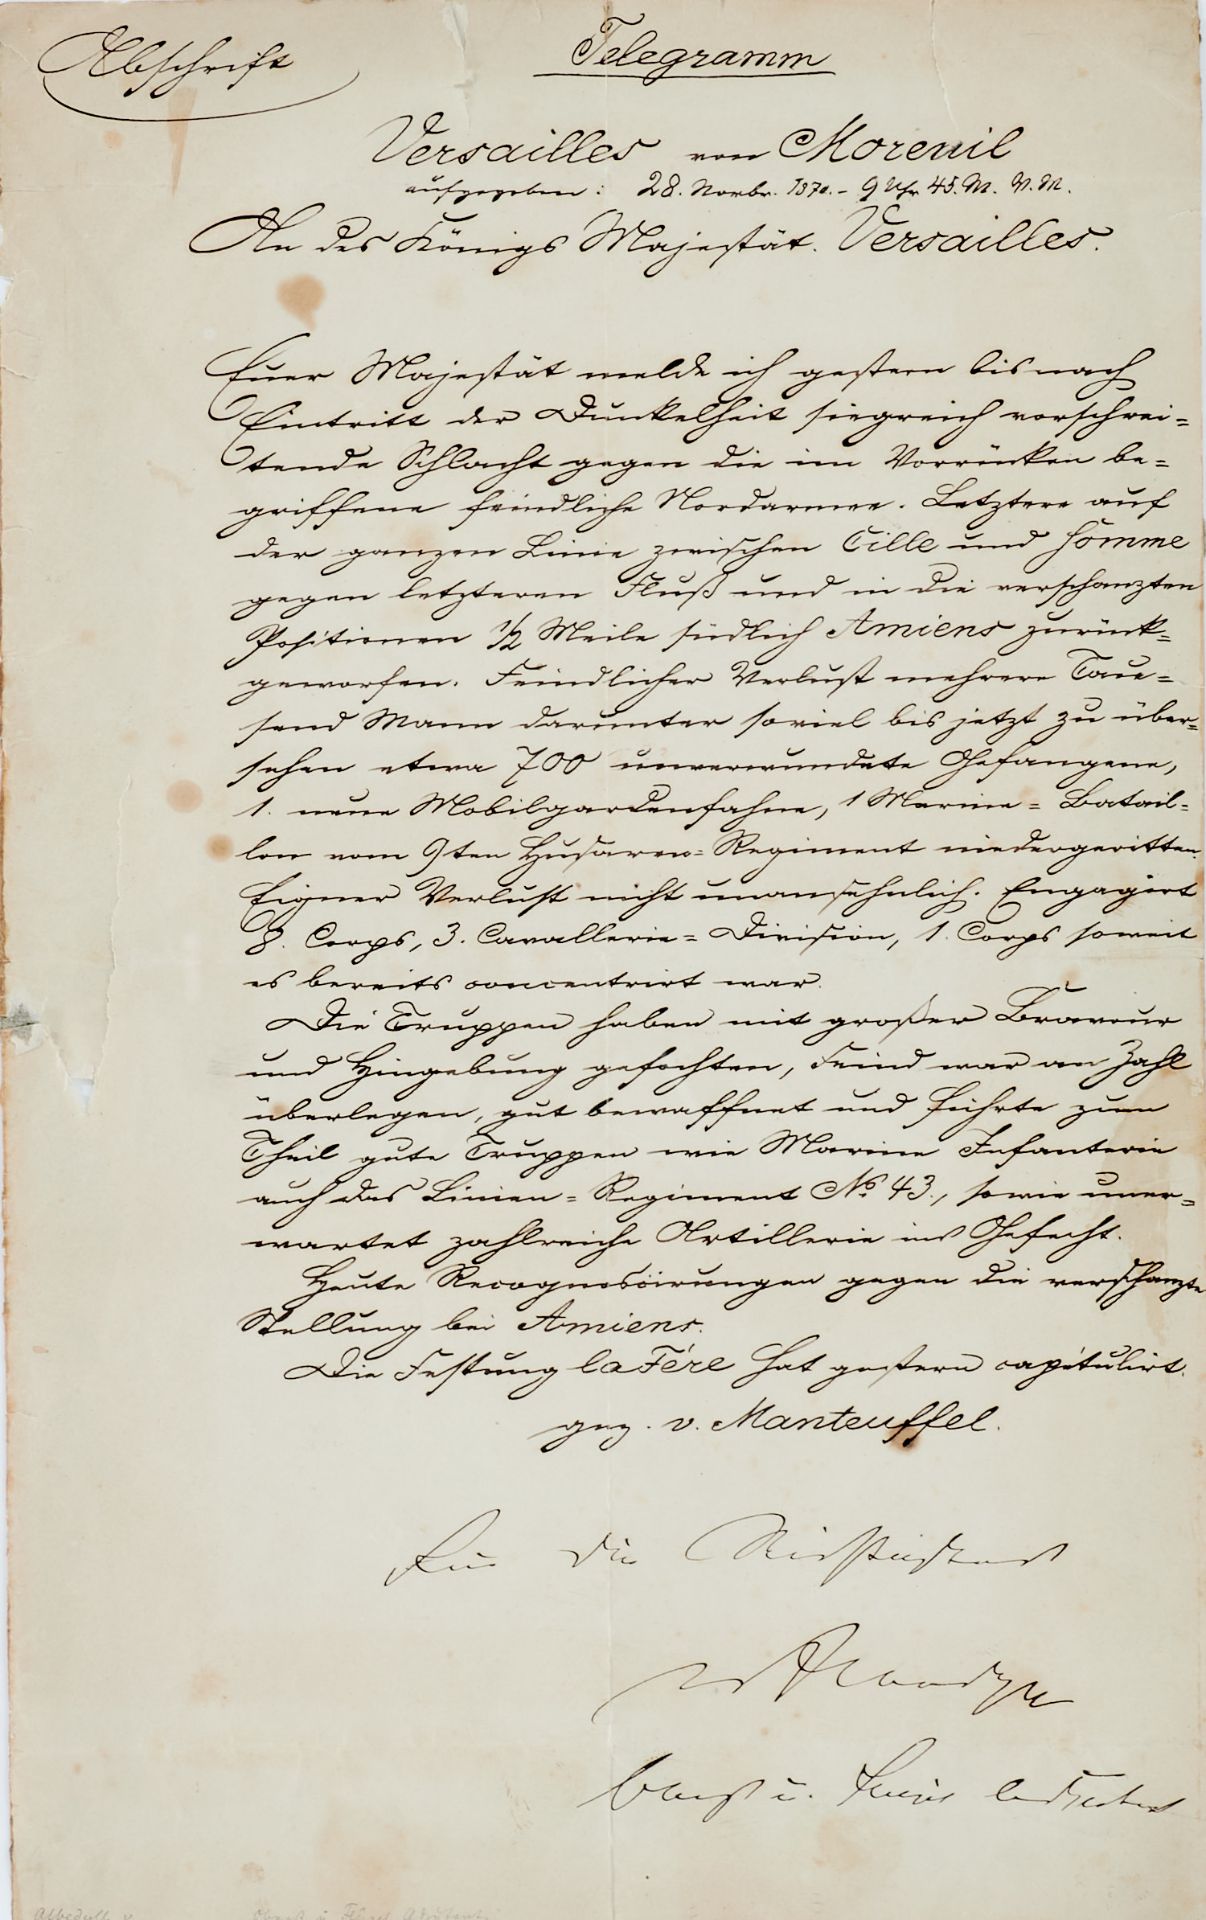 Abschrift
Telegramm
Versailles von Moreuil
aufgegeben: 28. Novbr. 1870. - 9 Uhr 45. M. V. M.
An des Königs Majestät. Versailles.
Euer Majestät melde ich gestern bis nach
Eintritt der Dunkelheit siegreich vorschrei=
tende Schlacht gegen die im Vorrücken be=
griffene feindliche Nordarmee. Letztere auf
der ganzen Linie zwischen Cille und Somme
gegen letzteren Fluß und in die verschanzten
Positionen 1/2 Meile südlich Amiens zurück=
geworfen. Feindlicher Verlust mehrere Tau=
send Mann darunter soviel bis jetzt zu über=
sehen etwa 700 unverwundete Gefangene,
1. neue Mobilgardenfahne, 1 Marine= Batail=
lon vom 9ten Husaren= Regiment niedergeritten.
Eigner Verlust nicht unansehnlich. Engagirt
8. Corps, 3. Cavallerie= Division, 1. Corps soweit
es bereits concentrirt war.
Die Truppen haben mit großer Bravour
und Hingebung gefochten, Feind war an Zahl
überlegen, gut bewaffnet und führte zum
Theil gute Truppen wie Marine Infanterie
auch das Linien= Regiment No 43., sowie uner=
wartet zahlreiche Artillerie ins Gefecht.
Heute Recognoscirungen gegen die verschanzte
Stellung bei Amiens.
Die Festung la Fére hat gestern capitulirt.
gez. v. Manteuffel.
Für die
Oberst u. Flügel Adjutant
Albedyll v
Oberst u Flügel Adjutant